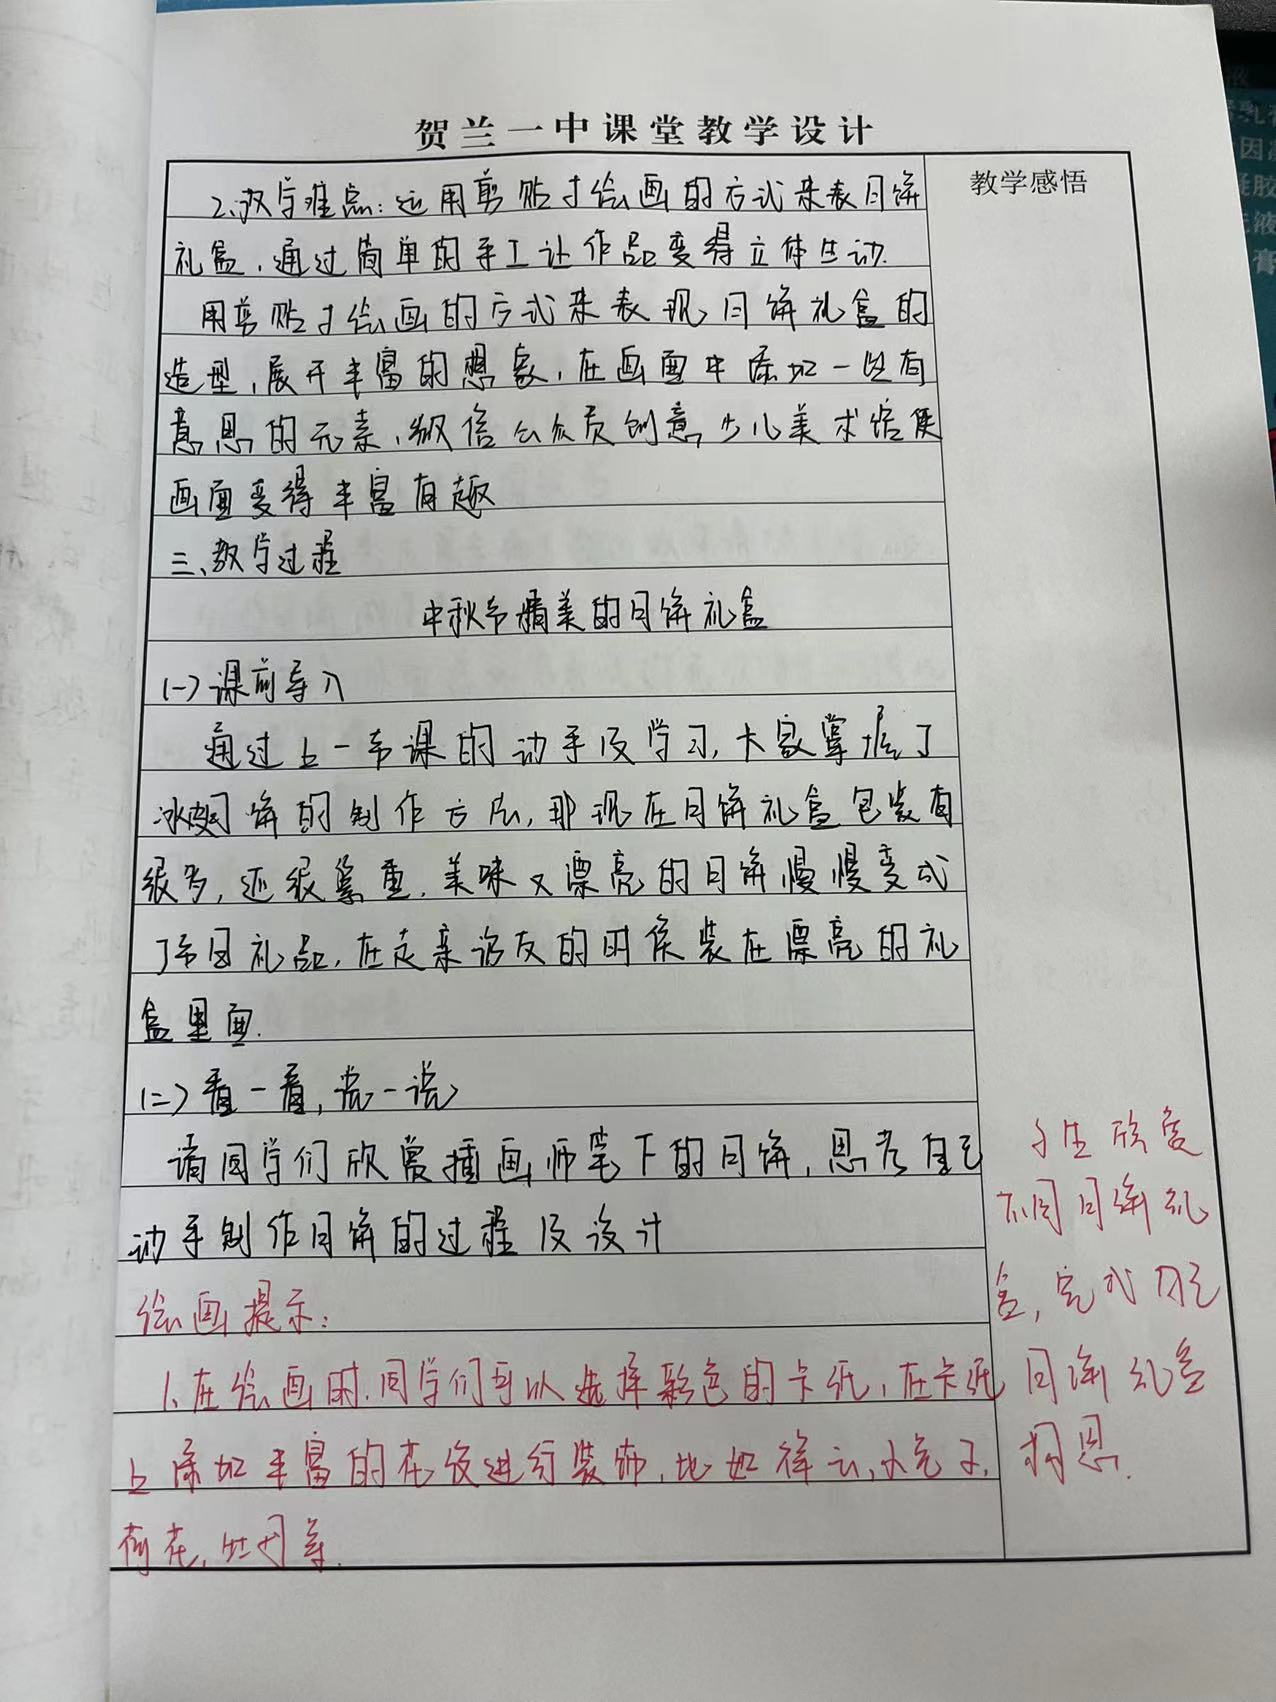 贺兰一中课堂教学设计
教学感悟
2、教学难点:运用剪贴与绘画的方式来表月饼
礼盒,通过简单的手工让作品变得立体生动.
用剪贴与绘画的方式来表现月饼礼盒的
造型,展开丰富的想象,在画面中添加一些有
意思的元素,微信公众号创意少儿美术馆使
画面变得丰富有趣
三、教学过程
中秋节精美的月饼礼盒
(一)课前导入
通过上一节课的动手及学习,大家掌握了
冰皮月饼的制作方法,那现在月饼礼盒包装有
很多,还很贵重,美味又漂亮的月饼慢慢变成
了节日礼品,在走亲访友的时候装在漂亮的礼
盒里面.
(二)看一看,说一说
请同学们欣赏插画师笔下的月饼,思考自己
动手制作月饼的过程及设计
绘画提示:
1、在绘画时,同学们可以选择彩色的卡纸,在卡纸
上添加丰富的花纹进行装饰,比如祥云,小兔子,
荷花,牡丹等.
学生欣赏
不同月饼礼
盒,完成自己
月饼礼盒
构思.